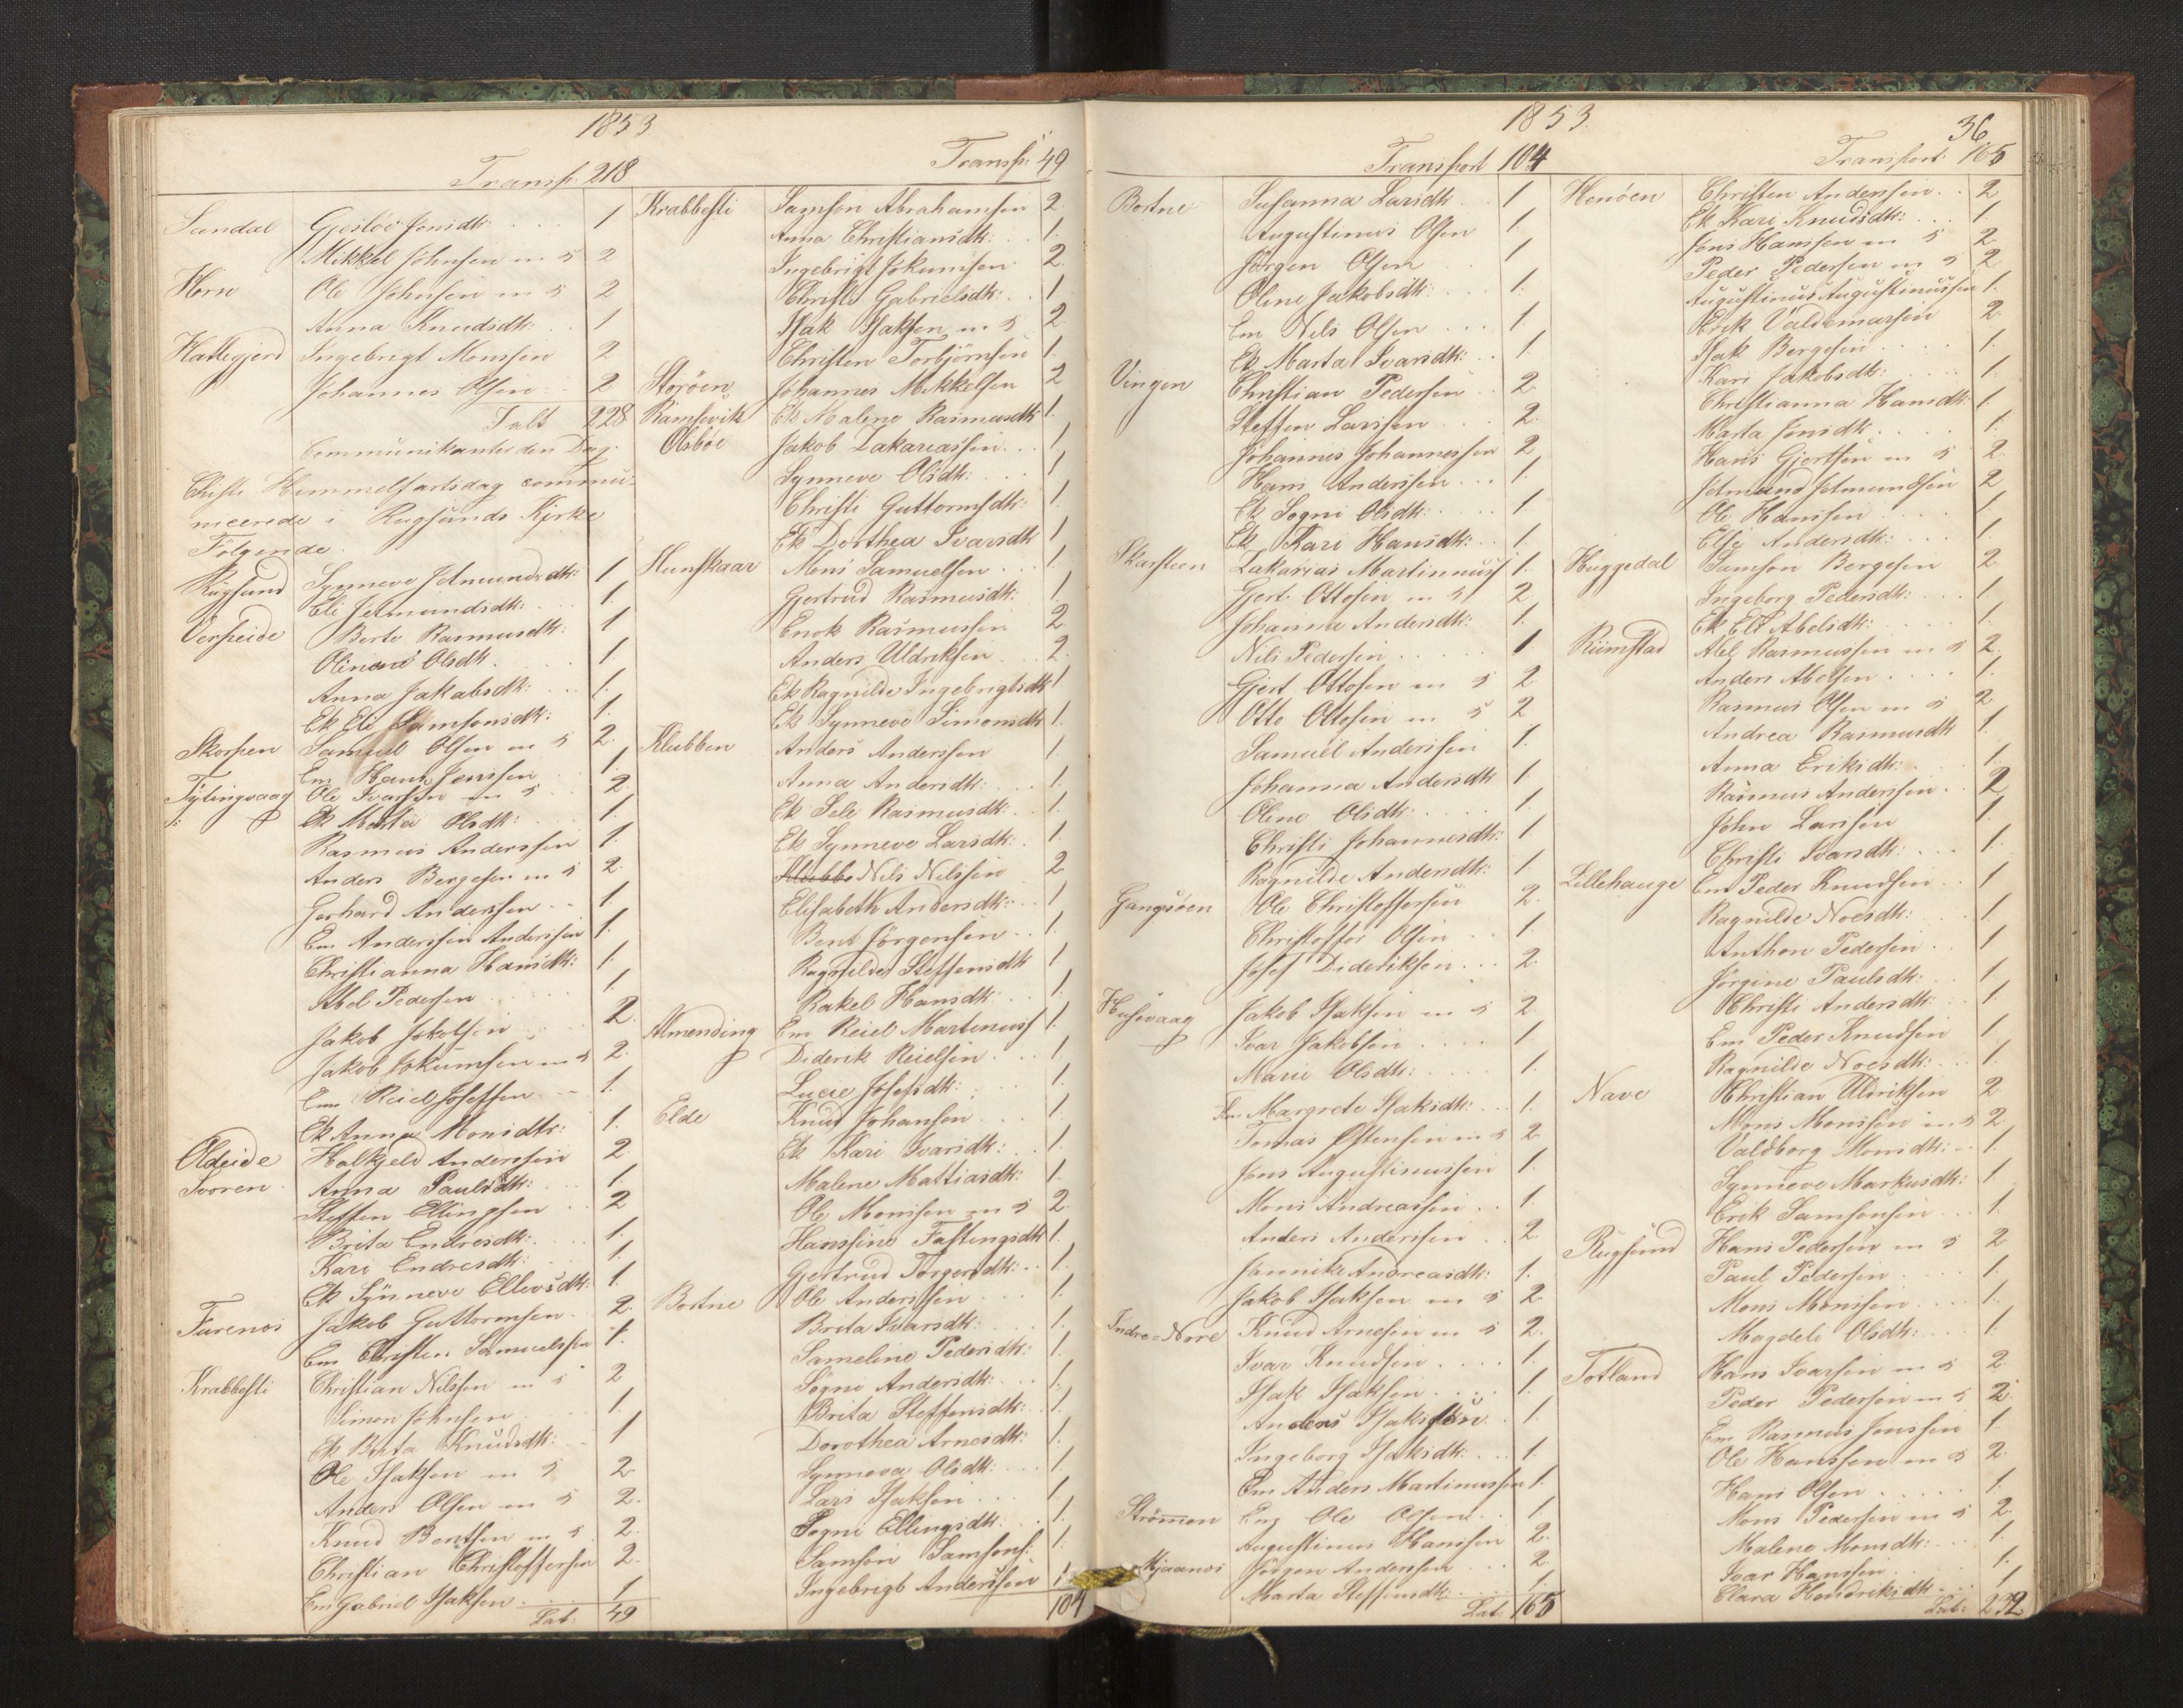 1853
Transp. 218
Sandal Gjesløe Jonsdtr: 1
Mikkel Johnsen m h 2
Horn Ole Johnsen m h 2
Anna Knudsdtr: 1
Hattegjerd Ingebrigt Monssen 2
Johannes Olsen 2
Talt 228
Communikanter den Dag.
Christi Himmelfartsdag commu-
nicerede i Rugsunds Kjrke
Følgende
Rugsund Synneve Jetmundsdtr: 1
Eli Jetmundsdtr: 1
Verpeide Berte Rasmusdtr: 1
Oline Olsdtr. 1
Anna Jakobsdtr: 1
Ek Eli Samsonsdtr: 1
Skorpen Samuel Olsen m h 2
Em Hans Jenssen 1
Tytingvaag Ole Ivarsen m h 2
Ek Marta Olsdtr: 1
Rasmus Anderssen 1
Anders Bergesen m h 2
Gerhard Anderssen 1
Em Anderssen Anderssen 1
Christianna Hansdtr: 1
Abel Pedersen 1
Jakob 2
Jakob Jokumsen m h 2
Em Reiel Joseffsen 1
Ek Anna Monsdtr: 1
Oldeide Halkjeld Anderssen 2
Tvoren Anna Paulsdtr: 1
Steffen Ellingsen 2
Brita Endresdtr: 1
Kari Endresdtr: 1
Ek Synneve Ellevsdtr: 1
Furenes Jakob Guttormsen 2
Em Christen Samuelssen 1
Krabbesti Christian Nilssen m h 2
Simon Johnsen 1
Ek Berta Knudsdtr: 1
Ole Isaksen m h 2
Anders Olsen m h 2
Knud Bentsen m h 2
Christian Christoffersen 2
Em Gabriel Isaksen 1
Lat: 49
Transp: 49
Krabbesti Samson Abrahamsen 2
Anna Christiansdtr: 1
Ingebrigt Jokumsen 2
Christi Gabrielsdtr: 1
Isak Isaksen m h 2
Christen Torbjørnsen 1
Storøen Johannes Mikkelsen 2
Ramsevik Ek Malene Rasmusdtr 1
Olsbøe Jakob Zakariassen 1
Synneve Olsdtr: 1
Christi Guttormsdtr: 1
Ek Dorthea Ivarsdtr 1
Hunskaar Mons Samuelsen 1
Gjertrud Rasmusdtr: 1
Enok Rasmussen 2
Anders Uldriksen 2
Ek Ragnilde Ingebrigtsdtr 1
Ek Synneve Simonsdtr 1
Klubben Anders Anderssen 1
Anna Andersdtr: 1
Ek Sele Rasmusdtr: 1
Ek Synneve Larsdtr: 1
Klubbe Nils Nilssen 2
Elisabeth Andersdtr: 1
Bent Jørgensen 1
Ragnilde Steffensdtr 1
Rakel Hansdtr: 1
Almending Em Reiel Martinuss 1
Diderik Reielsen 1
Lucie Josefsdtr: 1
Elde Knud Johansen 1
Ek Kari Ivarsdtr: 1
Malene Mattiasdtr: 1
Ole Monssen m h 2
Hanssine Fastingsdtr 1
Gjertrud Torgersdtr: 1
Bortne Ole Anderssen 1
Brita Ivarsdtr: 1
Sameline Pedersdtr: 1
Søgni Andersdtr: 1
Brita Steffensdtr: 1
Dorothea Arnesdtr: 1
Synneva Olsdtr: 1
Lars Isaksen 1
Sogni Ellingsdtr: 1
Samson Samsons: 1
Ingebrigt Anderssen 1
104
1853.
36
Transport 104
Bortne Susanna Larsdtr 1
Augustinus Olsen 1
Jørgen Olsen 1
Oline Jakobsdtr: 1
Em Nils Olsen 1
Ek Marta Ivarsdtr: 1
Vingen Christian Pedersen 2
Steffen Larssen 2
Johannes Johannessen 2
Hans Anderssen 1
Ek Sogni Olsdtr: 1
Ek Kari Hansdtr: 1
Skarsteen Zakarias Martinnuss 1
Gjert Ottosen m h 2
Johanna Andersdtr: 1
Nils Pedersen 1
Gjert Ottosen m h 2
Otto Ottosen m h 2
Samuel Anderssen 1
Johanna Andersdtr 1
Oline Olsdtr: 1
Christi Johannesdtr: 1
Ragnilde Andersdtr: 1
Gangsøen Ole Christoffersen 2
Christoffer Olsen 1
Josef Dideriksen 2
Husevaag Jakob Isaksen m h 2
Ivar Jakobsen 1
Marie Olsdtr: 1
Em Margrete Isaksdtr: 1
Tomas Østensen m h 2
Jens Augustinussen 1
Mons Andreassen 1
Anders Anderssen 2
Jannike Andreasdtr: 1
Jakob Isaksen m h 2
Indre=Nore Knud Arnesen m h 2
Ivar Knudsen 1
Isak Isaksen 1
Anders Isakssen 1
Ingeborg Isaksdtr: 1
Em Anders Martinussen 1
Strømmen Em Ole Olsen 1
Augustinus Hanssen 2
Mjaanes Jørgen Anderssen 2
Marta Steffensdtr: 1
Lat: 165
Transport: 165
Henøen Christen Anderssen 2
Ek Kari Knudsdtr: 1
Jens Hanssen m h 2
Peder Pedersen m h 2
Augustinus Augustinussen 1
Erik Valdemarsen 2
Isak Bergesen 1
Kari Jakobsdtr: 1
Christianna Hansdtr: 1
Marta Jensdtr: 1
Hans Gjertsen m h 2
Jetmund Jetmundsen 2
Ole Hanssen 1
Elsi Andersdtr: 1
Huggedal Samson Bergesen 2
Ingeborg Pedersdtr: 1
Ek Eli Abelsdtr: 1
Rimstad Abel Rasmussen m h 2
Anders Abelsen 1
Rasmus Olsen m h 2
Andrea Rasmusdtr 1
Anna Eriksdtr: 1
Rasmus Anderssen 2
John Larssen 1
Christi Ivarsdtr: 1
Lillehauge Em Peder Knudsen 1
Ragnilde Noesdtr: 1
Anthon Pedersen 1
Jørgine Paulsdtr: 1
Christi Andersdtr: 1
Em Peder Knudsen 1
Ragnilde Noesdtr: 1
Nave Christian Uldriksen 2
Mons Monssen m h 2
Valdborg Monsdtr: 1
Synneve Markusdtr: 1
Erik Samsonsen 1
Rugsund Hans Pedersen m h 2
Paul Pedersen 1
Mons Monssen 1
Magdeli Olsdtr: 1
Totland Hans Ivarsen m h 2
Peder Pedersen m h 2
Em Rasmus Jenssen 1
Ole Hanssen m h 2
Hans Olsen 1
Mons Pedersen m h 2
Malene Monsdtr: 1
Ivar Hanssen 1
Clara Hendriksdtr: 1
Lat: 232